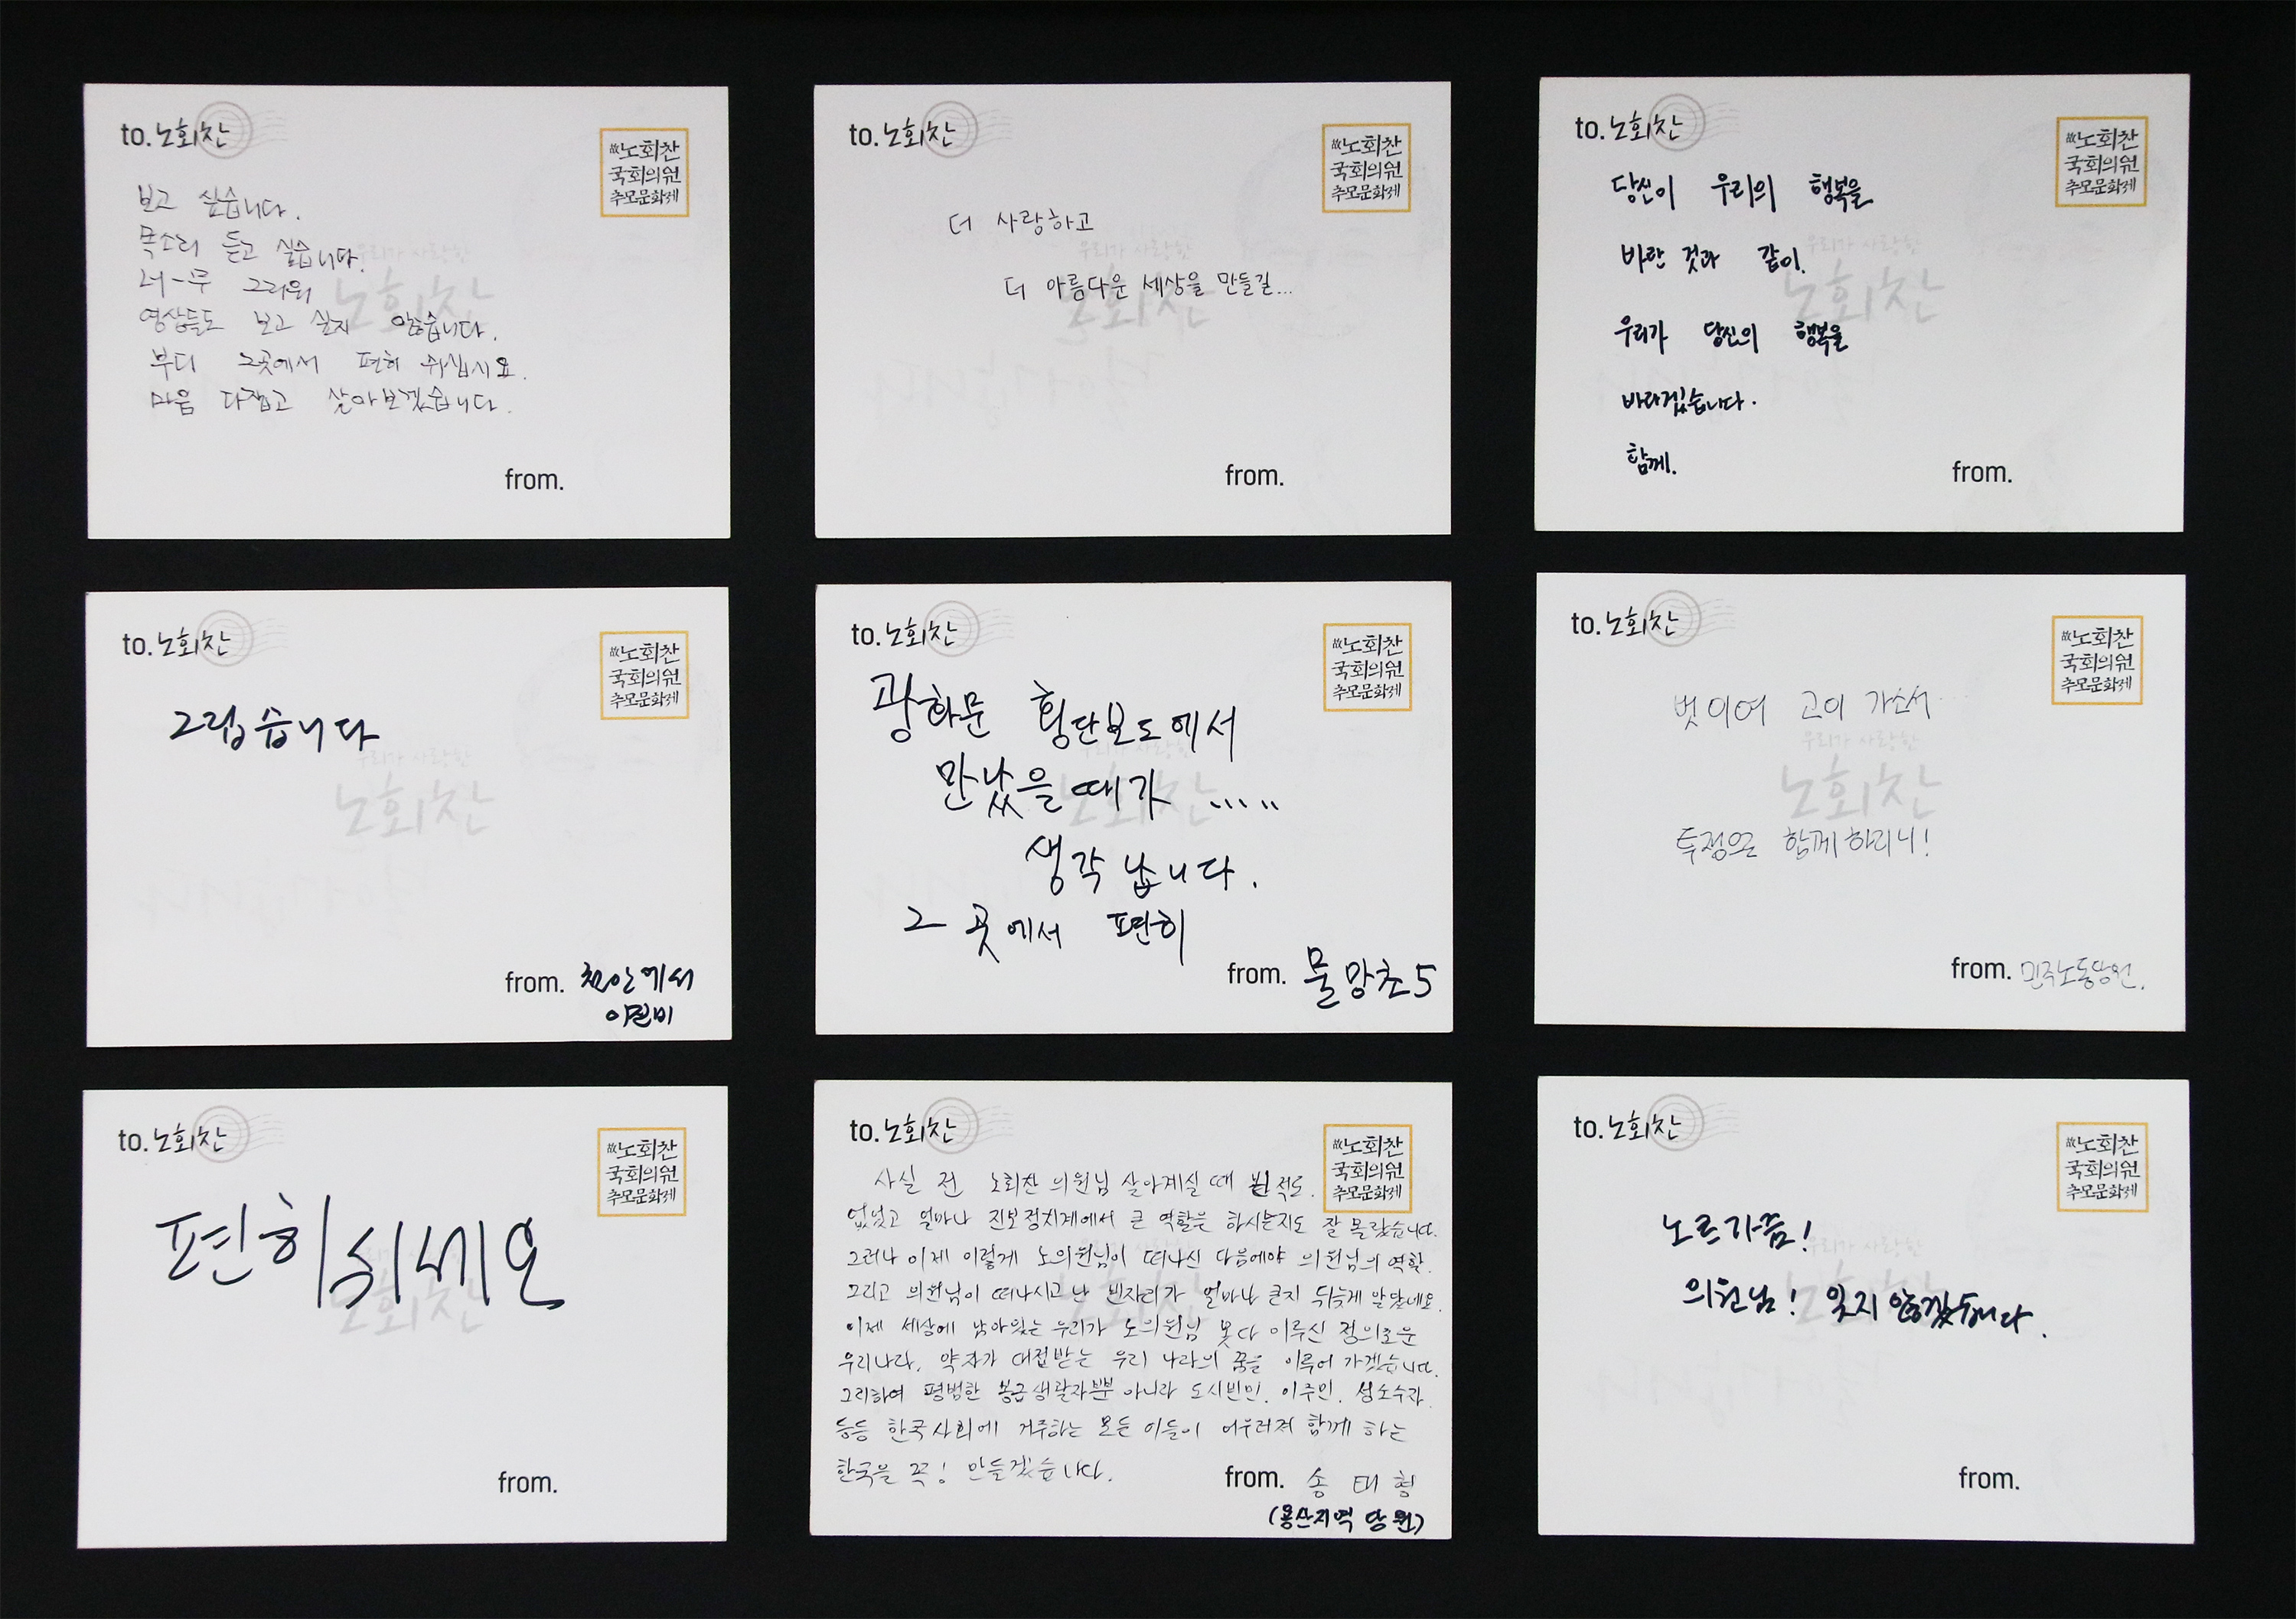 to. 노회찬
故노회찬
국회의원
추모문화제
보고 싶습니다.
목소리 듣고 싶습니다.
너-무 그리워
영상들도 보고 싶지 않습니다.
부디 그곳에서 편히 쉬십시요.
마음 다잡고 살아보겠습니다.
우리가 사랑한
노회찬
from.
to. 노회찬
故노회찬
국회의원
추모문화제
더 사랑하고
더 아름다운 세상을 만들길...
우리가 사랑한
노회찬
from.
to. 노회찬
故노회찬
국회의원
추모문화제
당신이 우리의 행복을
바란 것과 같이.
우리가 당신의 행복을
바라겠습니다.
함께.
우리가 사랑한
노회찬
from.
to. 노회찬
故노회찬
국회의원
추모문화제
그립습니다
우리가 사랑한
노회찬
from. 천안에서
to. 노회찬
故노회찬
국회의원
추모문화제
광화문 횡단보도에서
만났을때가 .....
생각납니다.
그 곳에서 편히
우리가 사랑한
노회찬
from. 물망초5
to. 노회찬
故노회찬
국회의원
추모문화제
벗이여 고이 가소서
우리가 사랑한
노회찬
투쟁으로 함께하리니!
from. 민주노동당원.
to. 노회찬
故노회찬
국회의원
추모문화제
편히쉬세요
우리가 사랑한
노회찬
from.
to. 노회찬
故노회찬
국회의원
추모문화제
사실 전 노회찬 의원님 살아계실 때 뵌 적도
없었고 얼마나 진보정치계에서 큰 역할을 하시는지도 잘 몰랐습니다.
그러나 이제 이렇게 노의원님이 떠나신 다음에야 의원님의 역할.
그리고 의원님이 떠나시고 난 빈자리가 얼마나 큰지 뒤늦게 깨닫네요.
이제 세상에 남아있는 우리가 노의원님 못다 이루신 정의로운
우리나라, 약자가 대접받는 우리 나라의 꿈을 이루어 가겠습니다.
그리하여 평범한 봉급생활자뿐 아니라 도시빈민, 이주민, 성소수자
등등 한국사회에 거주하는 모든 이들이 어우러져 함께 하는
한국을 꼭! 만들겠습니다.
from. 송태형
(용산지역 당원)
to. 노회찬
故노회찬
국회의원
추모문화제
노르가즘!
의원님! 잊지 않겠습니다.
우리가 사랑한
노회찬
from.